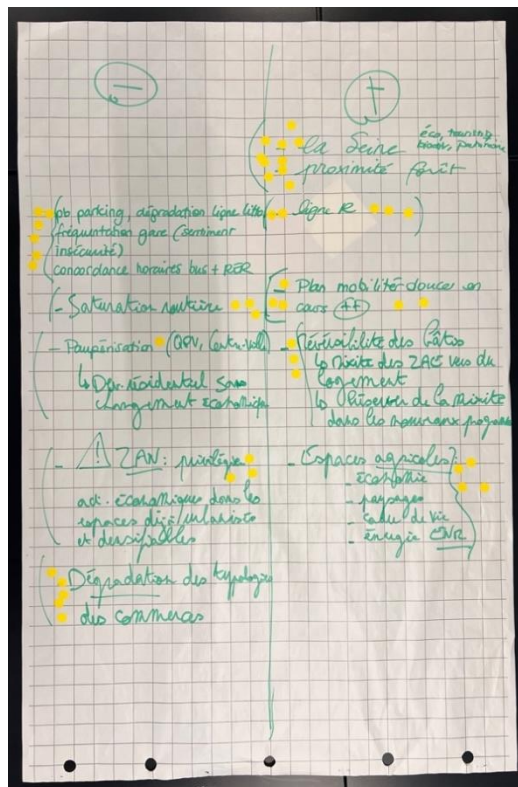 -
- pb parking, dégradation ligne
fréquentation gare (sentiment
insécurité)
concordance horaires bus + RER
- Saturation routière
- Paupérisation (QPV, Centre-ville)
↳ Dév. résidentiel sans
changement économique
- ⚠ ZAN : privilégier
act. économiques dans les
espaces déjà urbanisés
et densifiables
- Dégradation des typologies
des commerces
+
- la Seine éco, transup,
patrimoine
- proximité forêt
- ligne R
- Plan mobilité douce en
cours (++)
- Réversibilité des bâtis
↳ Mixité des ZAC vers du
logement
↳ de la mixité
dans les nouveaux programmes
- Espaces agricoles :
- économie
- paysages
- cadre de vie
- énergie ENR